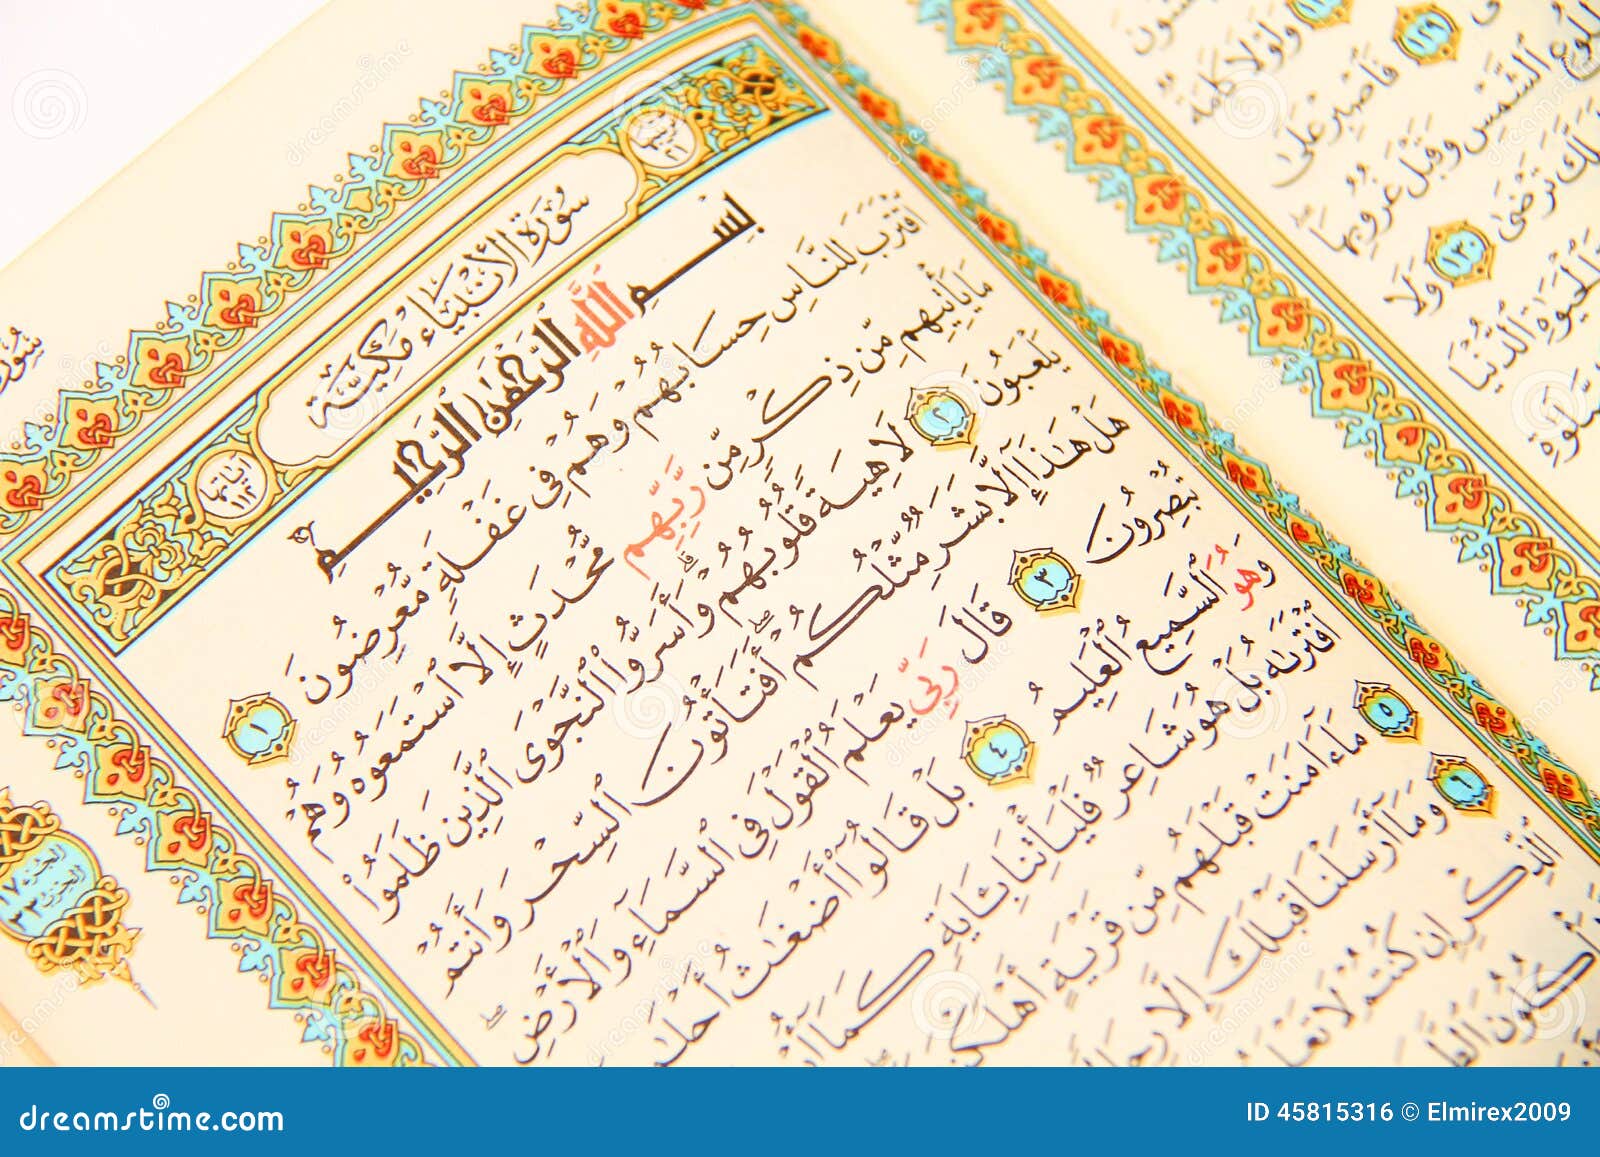 سُورَةُ الأَنْبِيَاءِ مَكِّيَّة
بِسْمِ اللَّهِ الرَّحْمَٰنِ الرَّحِيمِ
ٱقْتَرَبَ لِلنَّاسِ حِسَابُهُمْ وَهُمْ فِى غَفْلَةٍ مُّعْرِضُونَ ١
مَا يَأْتِيهِم مِّن ذِكْرٍ مِّن رَّبِّهِم مُّحْدَثٍ إِلَّا ٱسْتَمَعُوهُ وَهُمْ
يَلْعَبُونَ ٢ لَاهِيَةً قُلُوبُهُمْ وَأَسَرُّوا۟ ٱلنَّجْوَى ٱلَّذِينَ ظَلَمُوا۟
هَلْ هَٰذَآ إِلَّا بَشَرٌ مِّثْلُكُمْ أَفَتَأْتُونَ ٱلسِّحْرَ وَأَنتُمْ
تُبْصِرُونَ ٣ قَالَ رَبِّى يَعْلَمُ ٱلْقَوْلَ فِى ٱلسَّمَآءِ وَٱلْأَرْضِ
وَهُوَ ٱلسَّمِيعُ ٱلْعَلِيمُ ٤ بَلْ قَالُوٓا۟ أَضْغَٰثُ أَحْلَٰمٍ
ٱفْتَرَىٰهُ بَلْ هُوَ شَاعِرٌ فَلْيَأْتِنَا بِـَٔايَةٍ كَمَآ
٥ مَآ ءَامَنَتْ قَبْلَهُم مِّن قَرْيَةٍ
٦ وَمَآ أَرْسَلْنَا قَبْلَكَ إِلَّا
ٱلذِّكْرِ إِن كُنتُمْ لَا
وَلَوْلَا كَلِمَةٌ
١٢٩ فَٱصْبِرْ عَلَىٰ
ٱلشَّمْسِ وَقَبْلَ غُرُوبِهَا
تَرْضَىٰ ١٣٠ وَلَا
ٱلْحَيَوٰةِ ٱلدُّنْيَا
dreamstime.com
ID 45815316 © Elmirex2009